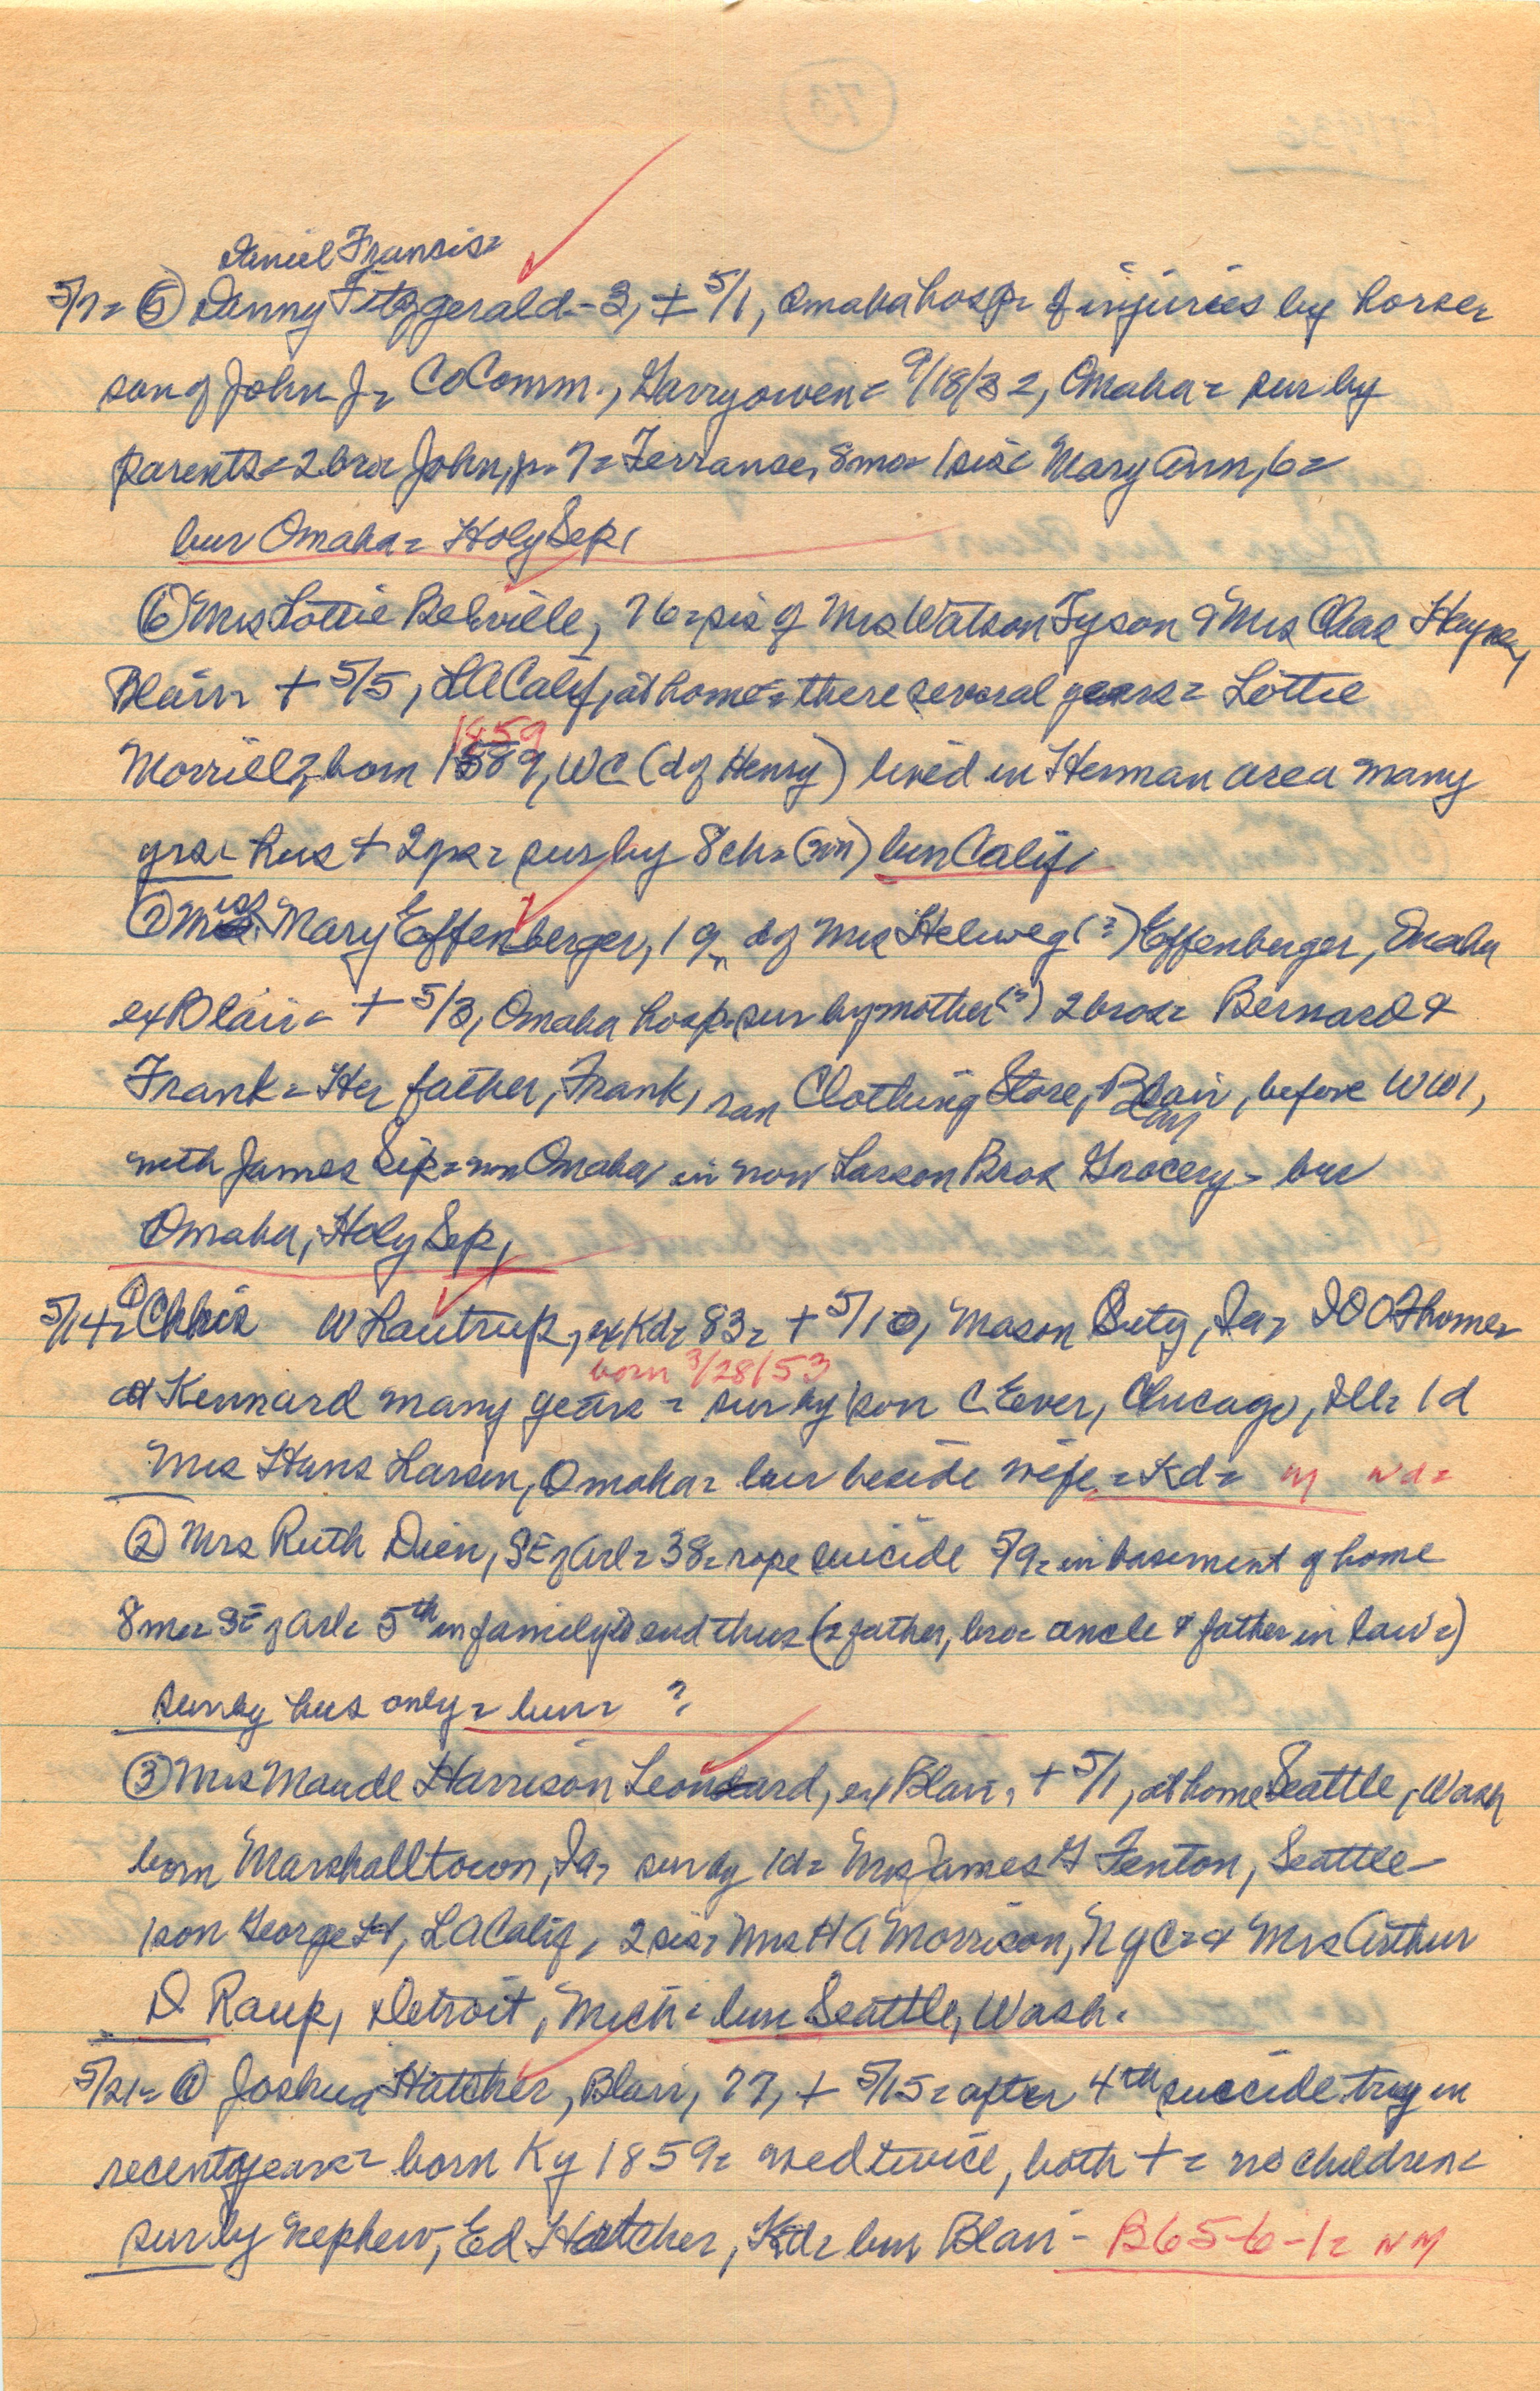 Daniel Francis=
5/7= ⑤ Danny Fitzgerald- 3, + 5/1, Omaha hosp= of injuries by horse=
son of John J= Co Comm., Garryowen= 9/18/32, Omaha= sur by
parents= 2 bro= John, jr= 7= Terranse, 8mo= 1 sis= Mary Ann, 6=
bur Omaha= Holy Sep,
⑥ Mrs Lottie Belville, 76= sis of Mrs Watson Tyson & Mrs Chas
Blair= + 5/5, LA Calif, at home= there several years= Lottie
1859
Morrill=, born 1889, WC (d of Henry) lived in Herman area many
yrs= hus + 2 yrs= sur by 8 ch= (nn) bur Calif,
⑦ Miss Mary Effenberger, 19= d of Mrs Helweg (?) Effenberger, Omaha
ex Blair= + 5/3, Omaha hosp= sur by mother (?) 2 bros= Bernard &
Frank= Her father, Frank, ran Clothing Store, Blair, before WW1,
with James Sip= nn Omaha, in now Larson Bros Grocery= bur
Omaha, Holy Sep,
5/14= ① Chris W Lautrup, ex Kd= 83= + 5/10, Mason City, Ia= IOOF home=
born 3/28/53
at Kennard many years= sur by 1 son C Ever, Chicago, Ill= 1 d
Mrs Hans Larsen, Omaha= bur beside wife= Kd= nd=
② Mrs Ruth Dien, SE of Arl= 38= rope suicide 5/9= in basement of home
8 m= SE of Arl= 5th in family to end thus (= father, bro= uncle & father in law=)
sur by hus only= bur= ?
③ Mrs Maude Harrison Leonard, ex Blair, + 5/1, at home Seattle, Wash
born Marshalltown, Ia, sur by 1 d= Mrs James G Fenton, Seattle-
1 son George H, LA Calif, 2 sis= Mrs H A Morrison, NYC= & Mrs Arthur
D Raup, Detroit, Mich= bur Seattle, Wash.
5/21= ① Joshua Hatcher, Blair, 77, + 5/15= after 4th suicide try in
recent years= born Ky 1859= wed twice, both += no children=
sur by nephew, Ed Hatcher, Kd= bur Blair- B65-6-1= NM